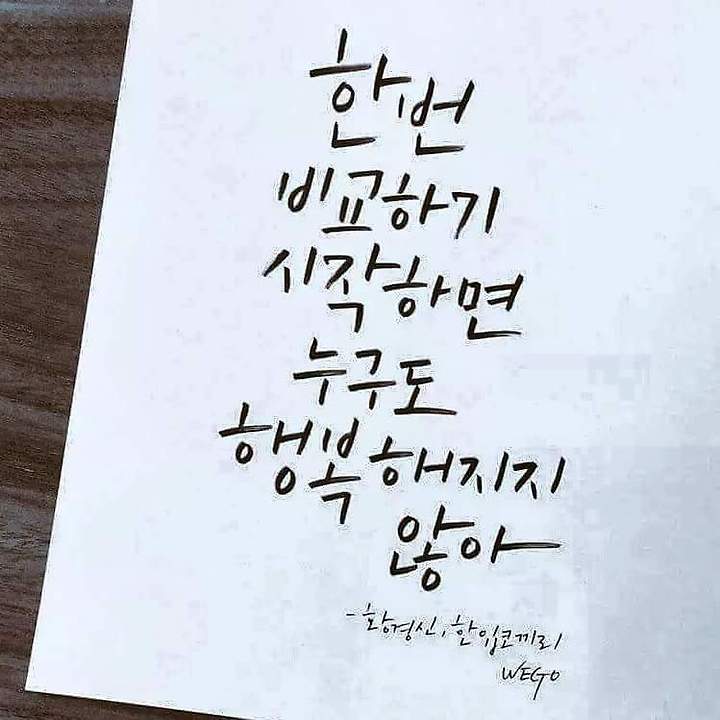 한번
비교하기
시작하면
누구도
행복해지지
않아
- 황경신, 한입코끼리
WEGO